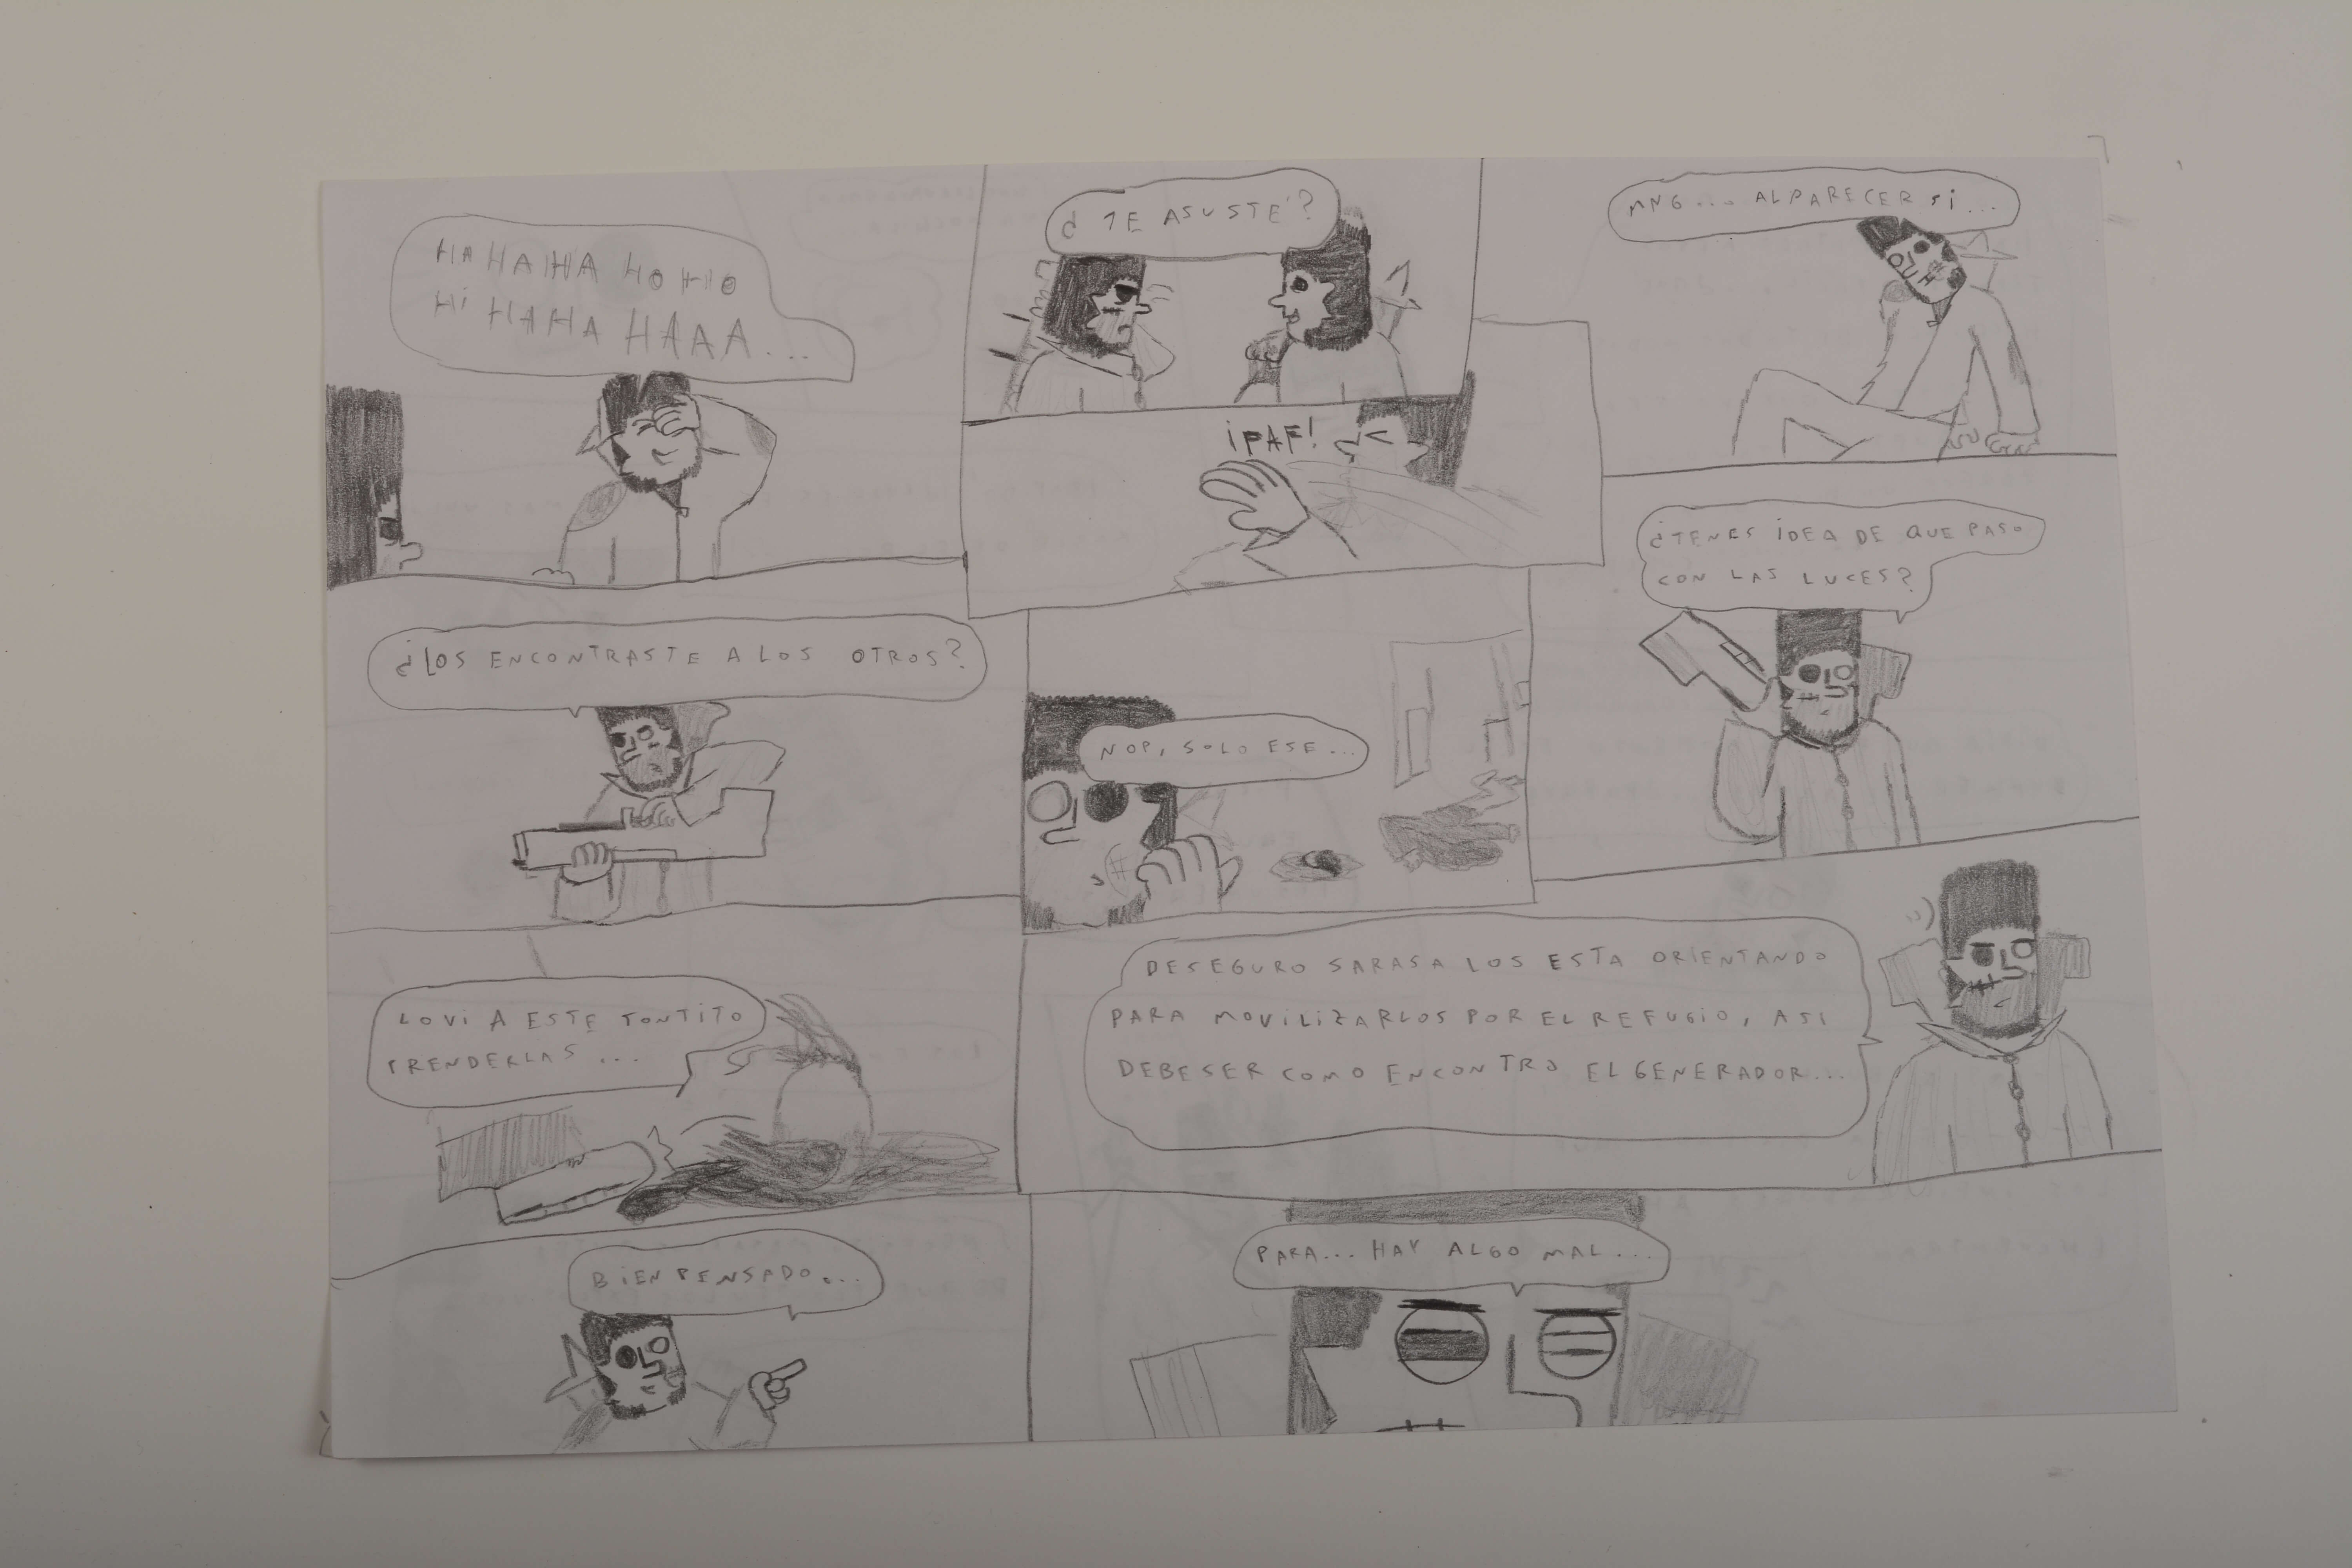 HA HAHHA HO HHO
Hi HAHA HAAA...
¿TE ASUSTE?
¡PAF!
MNG... ALPARECER Si...
¿LOS ENCONTRASTE A LOS OTROS?
NOP, SOLO ESE...
¿TENES iDEA DE QUE PASO
CON LAS LUCES?
LO Vi A ESTE TONTITO
PRENDERLAS...
DESEGURO SARASA LOS ESTA ORIENTANDO
PARA MOVILIZARLOS POR EL REFUGIO, ASI
DEBESER COMO ENCONTRO EL GENERADOR...
BiEN PENSADO...
PARA... HAY ALGO MAL...